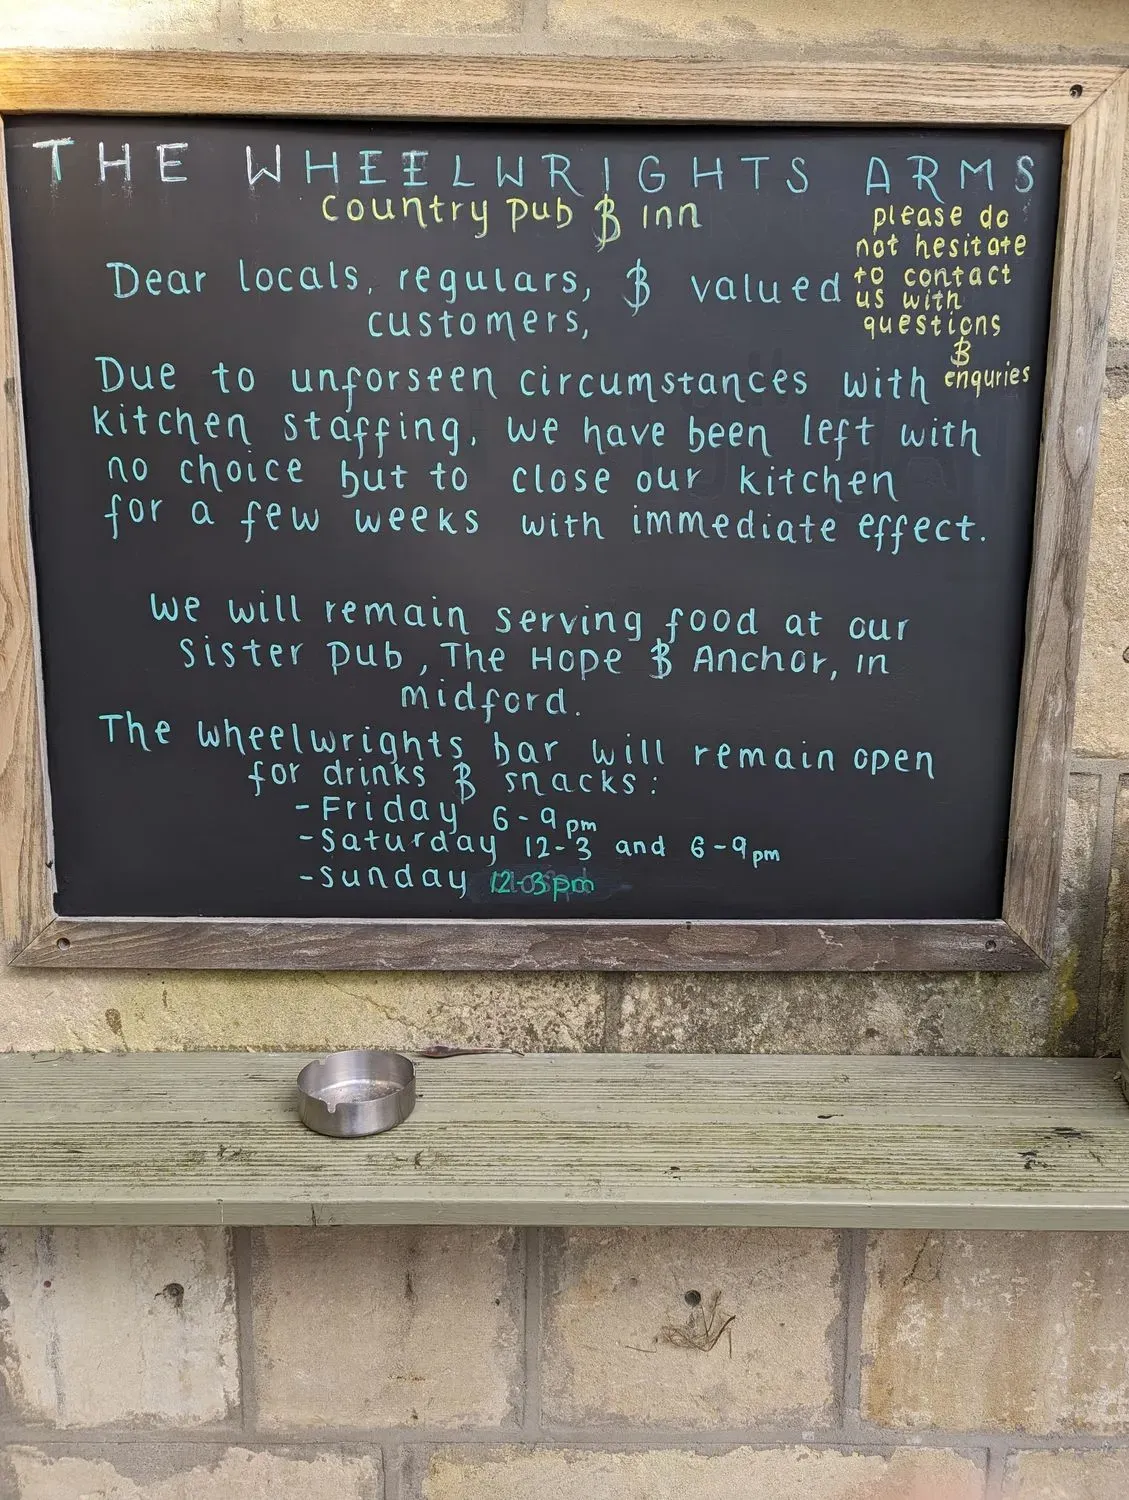 THE WHEELWRIGHTS ARMS
country pub & inn
please do
not hesitate
to contact
us with
questions
&
enquries
Dear locals, regulars, & valued
customers,
Due to unforseen circumstances with
kitchen staffing, we have been left with
no choice but to close our kitchen
for a few weeks with immediate effect.
We will remain serving food at our
sister pub, The Hope & Anchor, in
midford.
The wheelwrights bar will remain open
for drinks & snacks:
-Friday 6-9pm
-Saturday 12-3 and 6-9pm
-sunday 12-3pm